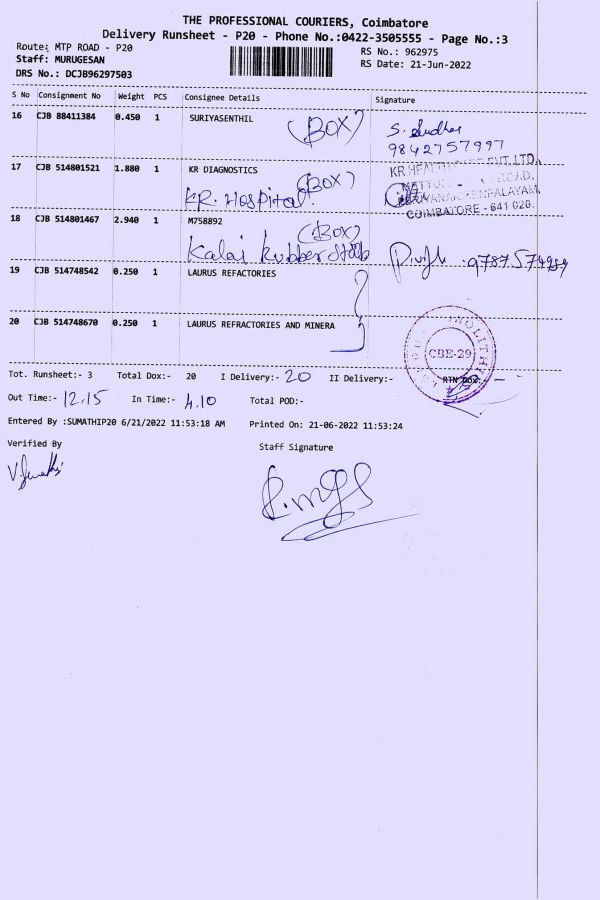 THE PROFESSIONAL COURIERS, Coimbatore
Delivery Runsheet - P20 - Phone No.:0422-3505555 - Page No.:3
Route: MTP ROAD - P20
RS No.: 962975
Staff: MURUGESAN
RS Date: 21-Jun-2022
DRS No.: DCJB96297503
S No Consignment No Weight PCS Consignee Details Signature
16 CJB 88411384 0.450 1 SURIYASENTHIL (BOX) S. Sudha
9842757997
17 CJB 514801521 1.880 1 KR DIAGNOSTICS (BOX)
KR. Hospital.
COIMBATORE - 641 028.
18 CJB 514801467 2.940 1 M758892 (BOX)
Kalai Rubber
19 CJB 514748542 0.250 1 LAURUS REFACTORIES
20 CJB 514748670 0.250 1 LAURUS REFRACTORIES AND MINERA
CBE-29
Tot. Runsheet:- 3 Total Dox:- 20 I Delivery:- 20 II Delivery:- RTN DOX:-
Out Time:- 12.15 In Time:- 4.10 Total POD:-
Entered By :SUMATHIP20 6/21/2022 11:53:18 AM Printed On: 21-06-2022 11:53:24
Verified By Staff Signature